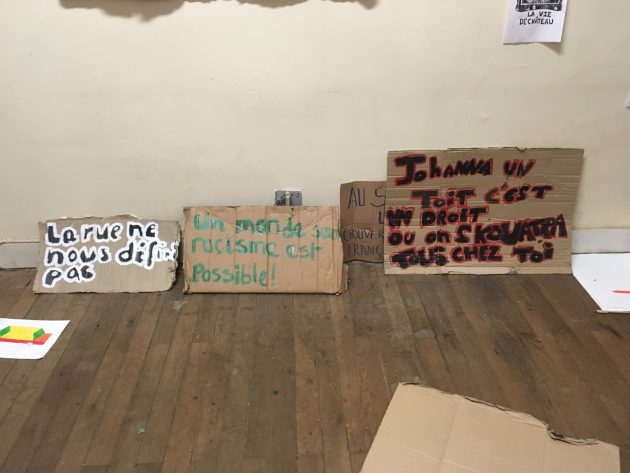 LA VIE
DE CHÂTEAU
La rue ne
nous défini
pas
Un monde sans
racisme est
Possible!
AU S
GOUVER
FRANC
JOHANNA UN
TOIT C'EST
UN DROIT
OU ON SKOUATRA
TOUS CHEZ TOI